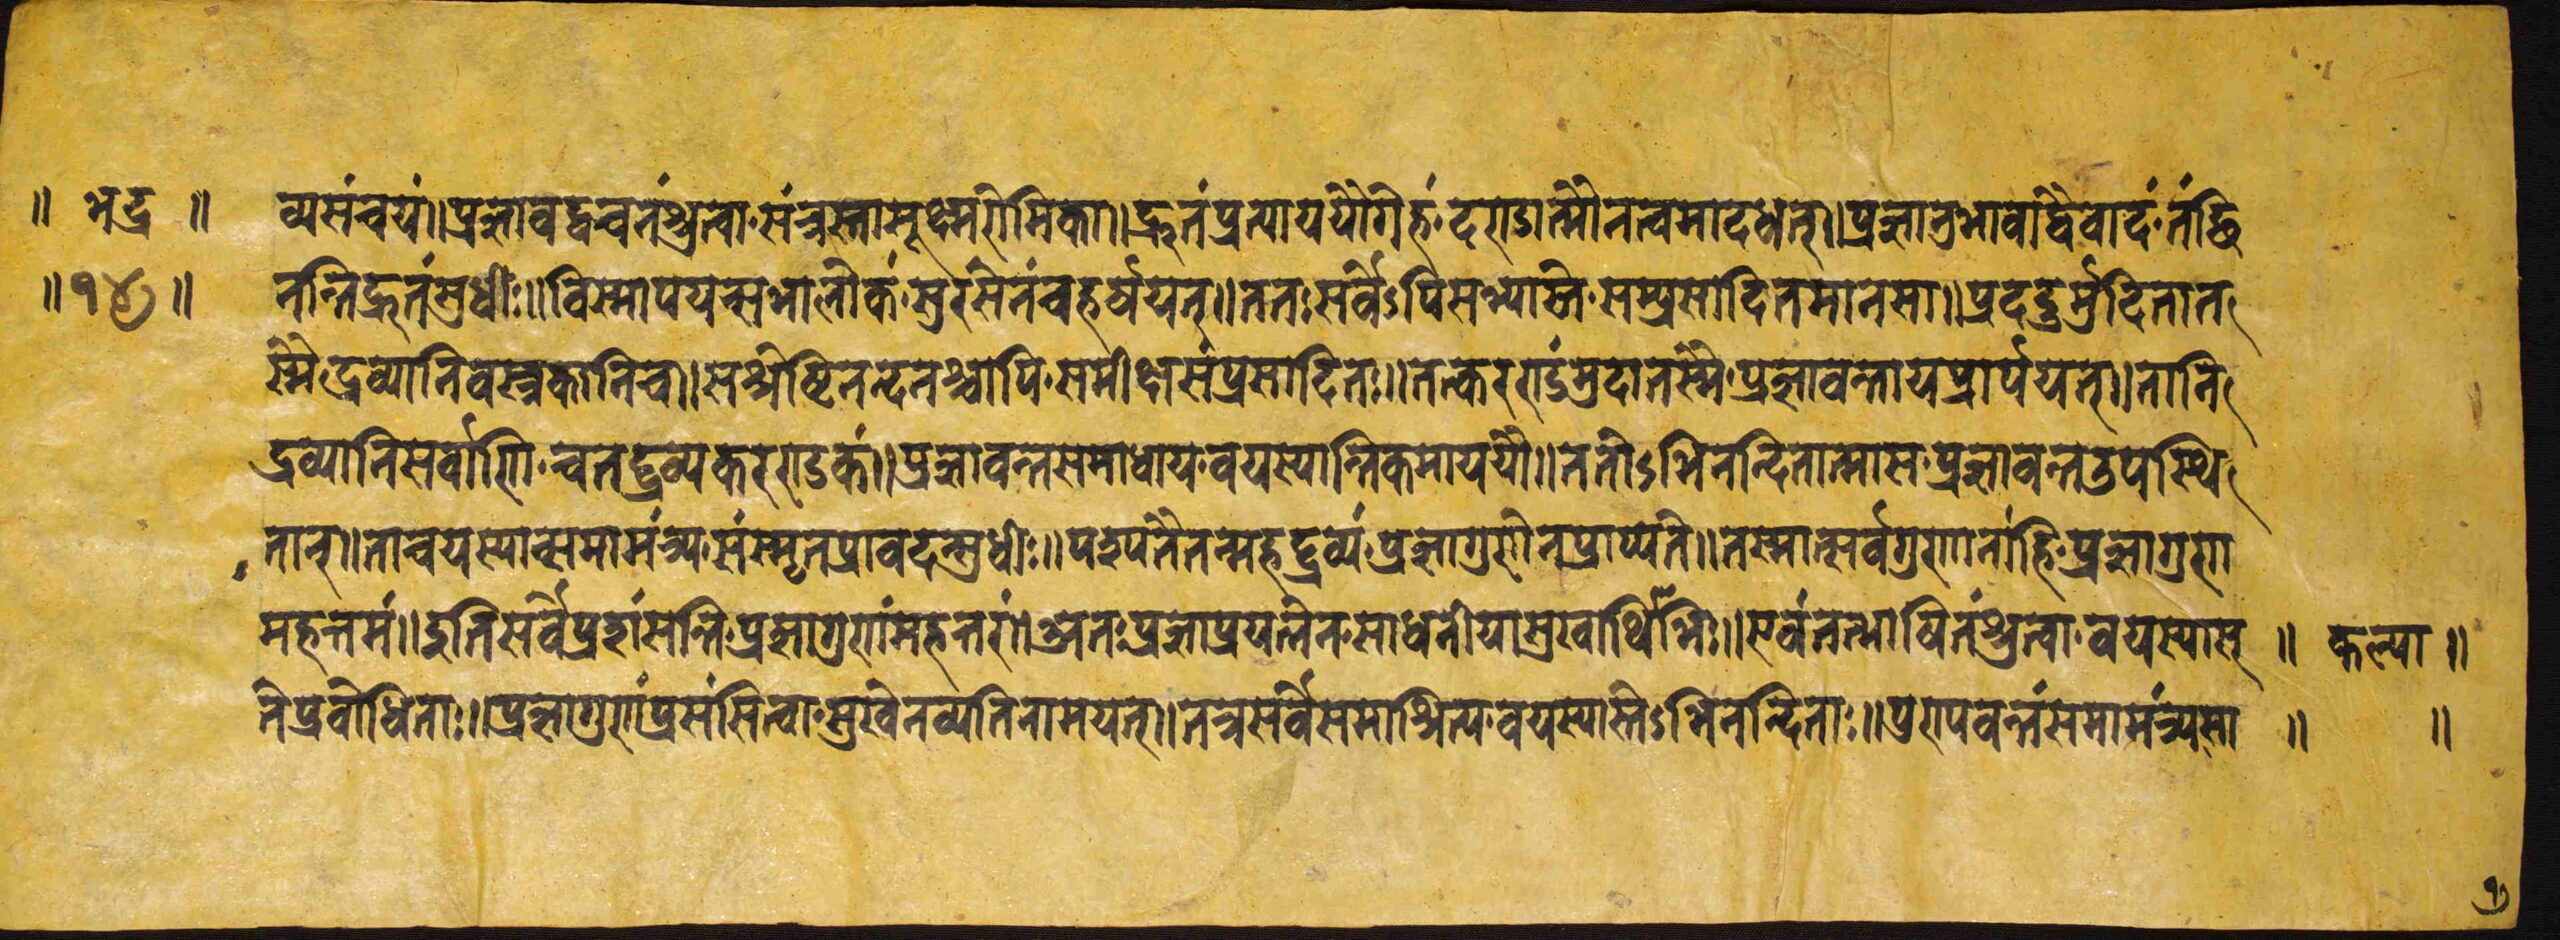 ॥ भद्र ॥ व्यसंचयं॥प्रज्ञावद्वचनंश्रुत्वा॰संत्रस्तासूक्ष्मरोमिका॥द्रुतंप्रत्याययौगेहं॰दण्डात्मौनत्वमादधत्॥प्रज्ञानुभावाद्वैवादं॰तंछि
॥१४॥ नत्तिद्रुतंसुधीः॥विस्मापयन्सभालोकं॰सुरसेनंचहर्षयत्॥ततःसर्वेऽपिसभ्यास्ते॰सम्प्रसादितमानसा॥प्रददुर्मुदितात
स्मै॰द्रव्यानिवस्त्रकानिच॥सश्रेष्ठिनन्दनश्चापि॰समीक्षसंप्रसादितः॥तत्करण्डंमुदातस्मै॰प्रज्ञावन्तायप्रार्पयत्॥तानि
द्रव्यानिसर्वाणि॰चतद्द्रव्यकरण्डकं॥प्रज्ञावन्तसमाधाय॰वयस्यान्तिकमाययौ॥ततोऽभिनन्दितात्मास॰प्रज्ञावन्तउपस्थि
तान्॥तान्वयस्यान्समामंत्र्य॰संस्मृतप्रावदत्सुधीः॥पश्यतैतन्महद्द्रव्यं॰प्रज्ञागुणेनप्राप्यते॥तस्मात्सर्वगुणानांहि॰प्रज्ञागुणा
महत्तमं॥इतिसर्वेप्रशंसन्ति॰प्रज्ञागुणंमहत्तरं॥अतःप्रज्ञाप्रयत्नेन॰साधनीयासुखार्थिभिः॥एवंतत्भाषितंश्रुत्वा॰वयस्यास् ॥ कल्या ॥
तेप्रबोधिताः॥प्रज्ञागुणंप्रसंसित्वा॰सुखेनव्यतिनामयत्॥तत्रसर्वेसमाश्रित्य॰वयस्यास्तेऽभिनन्दिताः॥पुण्यवन्तंसमामंत्र्यसा ॥ ॥